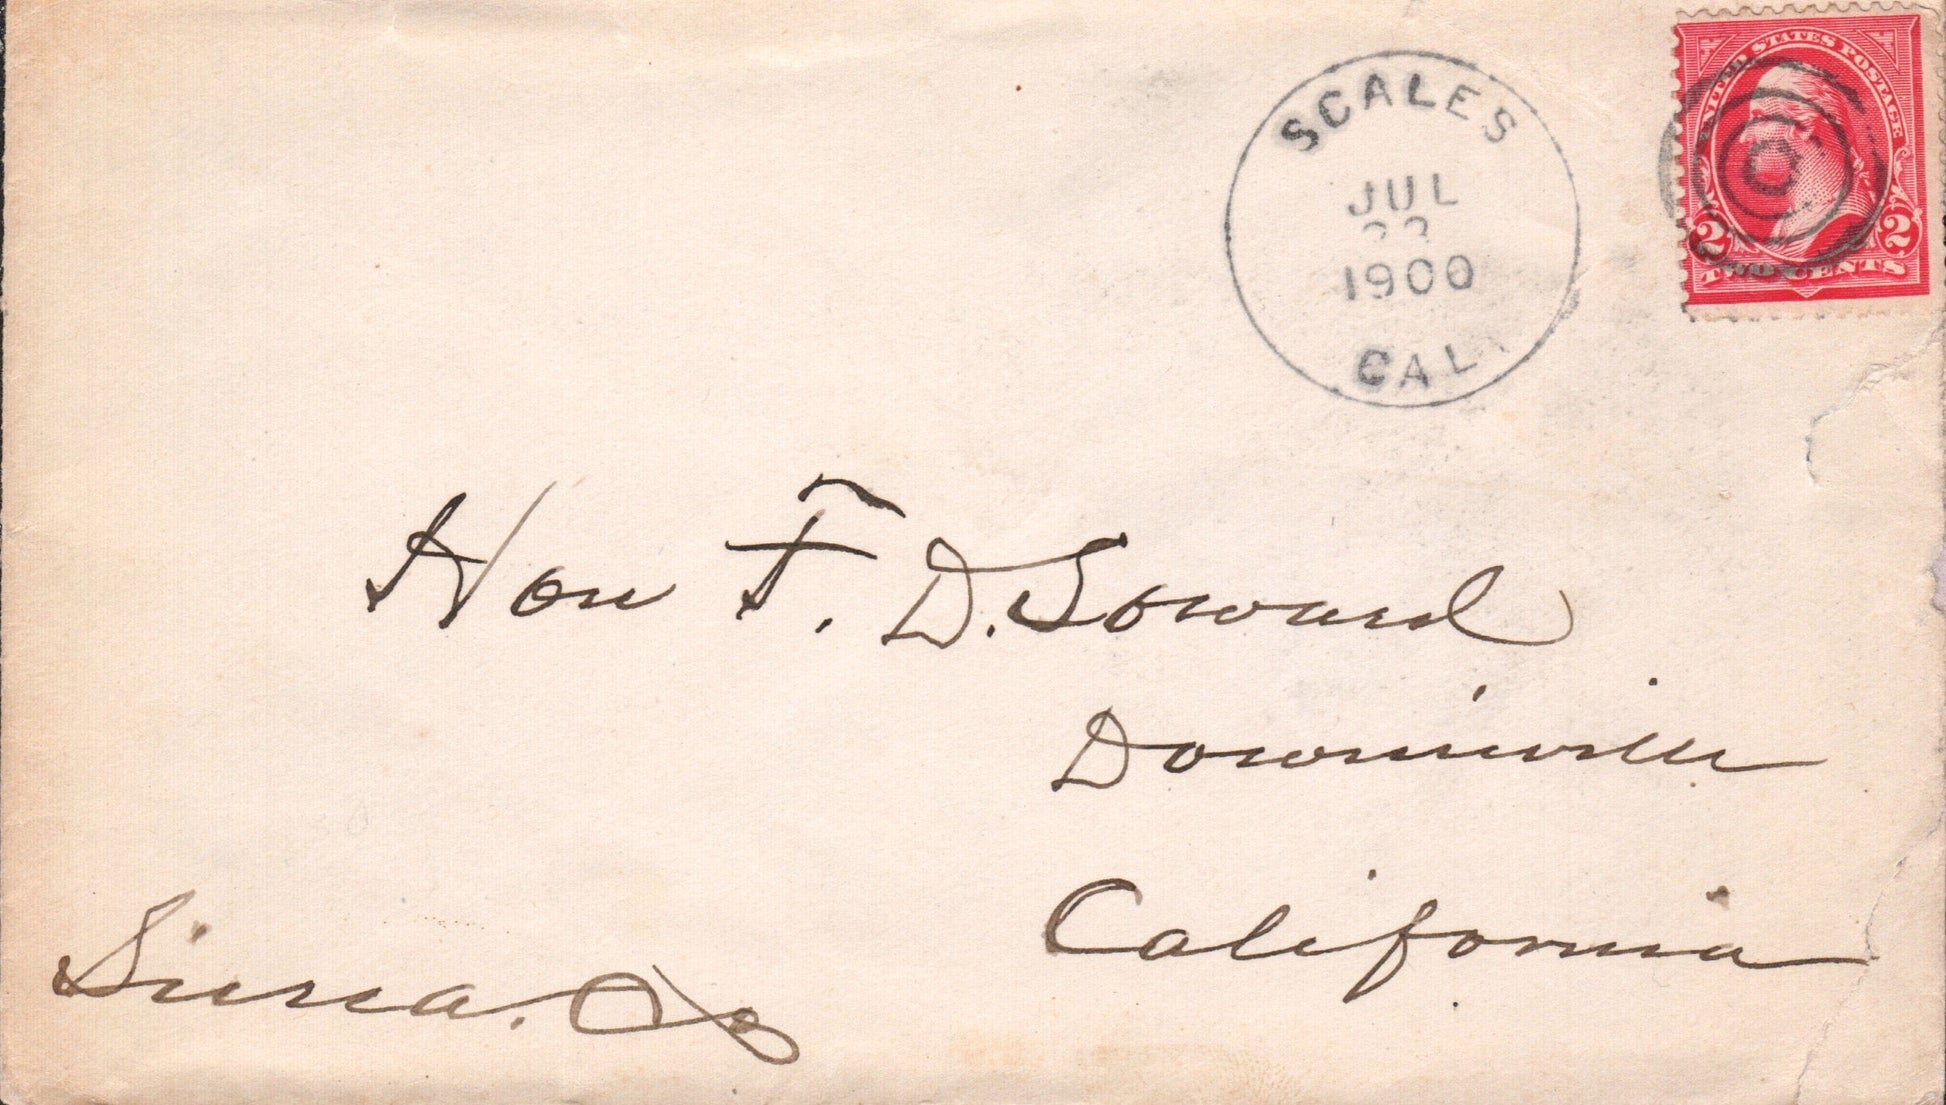 SCALES
JUL
1900
CAL
UNITED STATES POSTAGE
2 2
TWO CENTS
Hon F. D. Soward
Downieville
California
Sierra. Co